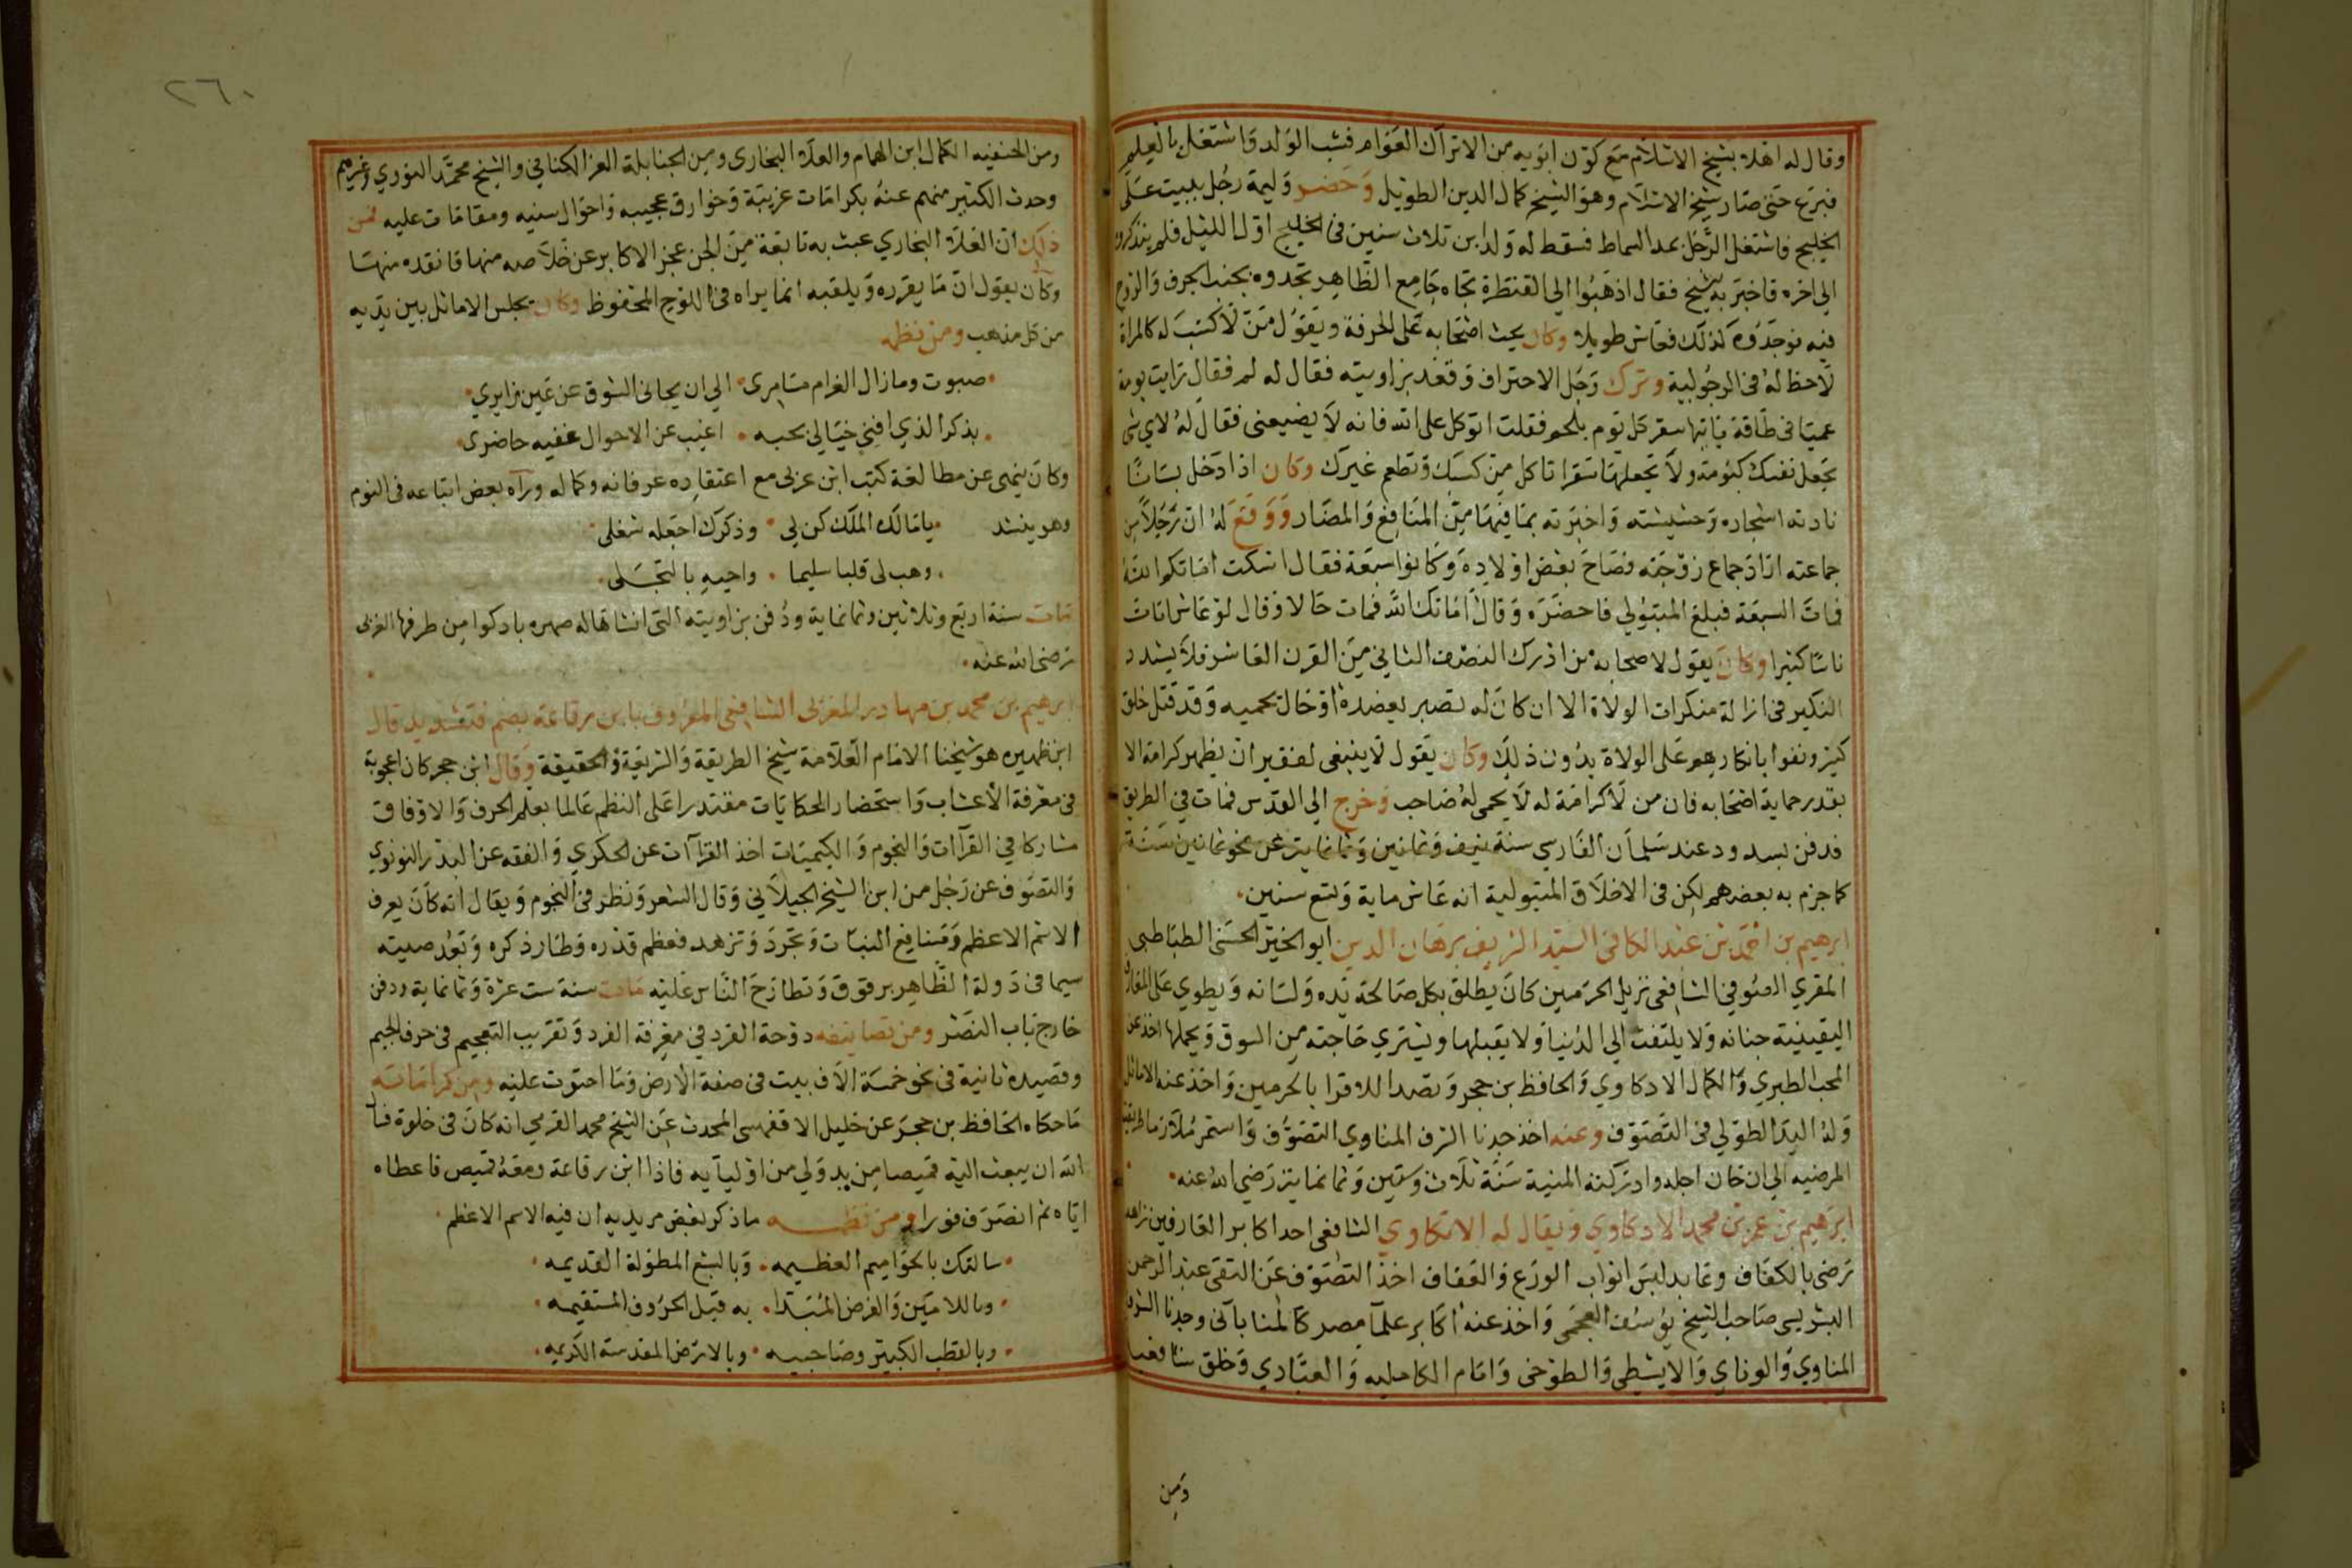 وقال له اهلا بشيخ الاسلام مع كون ابويه من الاتراك العوام فشب الولد واشتغل بالعلم
فبرع حتى صار شيخ الاسلام وهو الشيخ كمال الدين الطويل وحضر وليمة رجل ببيت على
الخليج فاشتغل الرجل بمد السماط فسقط له ولد ابن ثلاث سنين في الخليج اول الليل فلم يتذكروه
الى اخره فاخبر به الشيخ فقال اذهبوا الى القنطرة تجاه جامع الظاهر تجدوه بجنب الجرف والروح
فيه فوجدوه كذلك فعاش طويلا وكان يحث اصحابه على الحرفة ويقول من لا كسب له كالمراة
لاحظ له في الرجولية وترك رجل الاحتراف وقعد بزاويته فقال له لم فقال رايت بومة
عميا في طاقة ياتيها سقر كل يوم بلحم فقلت اتوكل على الله فانه لا يضيعنى فقال له لاى شى
تجعل نفسك كبومة ولا تجعلها سقرا تاكل من كسبك وتطعم غيرك وكان اذا دخل بستانا
نادته اشجاره وحشيشه واخبرته بما فيها من المنافع والمضار ووقع له ان رجلا من
جماعته اراد جماع زوجته فصاح بعض اولاده وكانوا سبعة فقال اسكت اماتكم الله
فمات السبعة فبلغ المتبولي فاحضره وقال اماتك الله فمات حالا وقال لو عاش امات
ناسا كثيرا وكان يقول لاصحابه من ادرك النصف الثاني من القرن العاشر فلا يشدد
النكير في ازالة منكرات الولاة الا ان كان له نصير يعضده او حال تحميه وقد قتل خلق
كثير ونفوا بانكارهم على الولاة بدون ذلك وكان يقول لا ينبغى لفقير ان يظهر كرامة الا
بقدر حماية اصحابه فان من لا كرامة له لا يحمى له صاحب وخرج الى القدس فمات في الطريق
فدفن بسدود عند سلمان الفارسي سنة نيف وثمانين وثمانماية عن نحو ثمانين سنة
كما جزم به بعضهم لكن في الاخلاق المتبولية انه عاش ماية وتسع سنين
ابرهيم بن احمد بن عبد الكافي السيد الشريف برهان الدين ابو الخير الحسنى الطباطبى
المقري الصوفي الشافعي نزيل الحرمين كان يطلق بكل صالحة يده ولسانه ويطوي على المعارف
اليقينية جنانه ولا يلتفت الى الدنيا ولا يقبلها ويشتري حاجته من السوق ويحملها اخذ عن
المحب الطبري والكمال الادكاوي والحافظ بن حجر وتصدا للاقرا بالحرمين واخذ عنه الاماثل
وله اليد الطولي في التصوف وعنه اخذ جدنا الشرف المناوي التصوف واستمر ملازما طريقته
المرضيه الى ان حان اجله وادركته المنية سنة ثلاث وستين وثمانماية رضي الله عنه
ابرهيم بن عمر بن محمد الادكاوي ويقال له الاتكاوي الشافعي احد اكابر العارفين زاهد
رضى بالكفاف وعابد لبس اثواب الورع والعفاف اخذ التصوف عن التقى عبد الرحمن
الشبريسى صاحب الشيخ يوسف العجمى واخذ عنه اكابر علما مصر كالمناباتى وجدنا الشرف
المناوي والوناي والابشيطى والطوخى وامام الكامليه والعبادي وخلق شافعيا
ومن
٢٦٠
ومن الحنفيه الكمال ابن الهمام والعلا البخارى ومن الحنابلة العز الكناني والشيخ محمد النوري وغيرهم
وحدث الكثير منهم عنه بكرامات غريبة وخوارق عجيبه واحوال سنيه ومقامات عليه فمن
ذلك ان العلا البخاري عبث به تابعة من الجن عجز الاكابر عن خلاصه منها فانقذه منها
وكان يقول ان ما يقرره ويلقيه انما يراه في اللوح المحفوظ وكان يجلس الاماثل بين يديه
من كل مذهب ومن نظمه
صبوت ومازال الغرام مسامرى الى ان يحاني الشوق عن عين زايري
بذكر الذي افنى خيالي بحبه اغيب عن الاحوال غفيه حاضرى
وكان ينهى عن مطالعة كتب ابن عربى مع اعتقاده عرفانه وكماله ورآه بعض اتباعه في النوم
وهو ينشد يا مالك الملك كن لي وذكرك اجعله شغلى
وهب لى قلبا سليما واحيه بالتجلى
مات سنة اربع وثلاثين وثمانماية ودفن بزاويته التى انشاها له صهره بادكوا من طرفها الغربى
رضى الله عنه
ابرهيم بن محمد بن بهادر المغربى الشافعى المعروف بابن رقاعة بضم فتشديد قال
ابن ظهيره هو شيخنا الامام العلامة شيخ الطريقة والشريعة والحقيقة وقال ابن حجر كان اعجوبة
في معرفة الاعشاب واستحضار الحكايات مقتدرا على النظم عالما بعلم الحرف والاوفاق
مشاركا في القرآات والنجوم والكيميات اخذ القراآت عن الحكري والفقه عن البدر القونوي
والتصوف عن رجل من ابن الشيخ الجيلاني وقال الشعر ونظر في النجوم ويقال انه كان يعرف
الاسم الاعظم ومنافع النبات وتجرد وتزهد فعظم قدره وطار ذكره وبعد صيته
سيما في دولة الظاهر برقوق وتطارح الناس عليه مات سنة ست عشرة وثمانماية ودفن
خارج باب النصر ومن تصانيفه دوحة الفرد في معرفة الفرد وتقريب التعجيم في حرف الجيم
وقصيده تائية في نحو خمسة الاف بيت في صفة الارض وما احتوت عليه ومن كراماته
ما حكاه الحافظ بن حجر عن خليل الاقفهسى المحدث عن الشيخ محمد القرمي انه كان في خلوة فسأل
الله ان يبعث اليه قميصا من يد ولي من اوليآيه فاذا ابن رقاعة ومعه قميص فاعطاه
اياه ثم انصرف فورا ومن نظمه ماذكر بعض مريديه ان فيه الاسم الاعظم
سالتك بالحواميم العظيمه وبالسبع المطولة القديمه
وباللامين والفرض المبتدا به قبل الحروف المستقيمه
وبالقطب الكبير وصاحبيه وبالارض المقدسة الكريمه